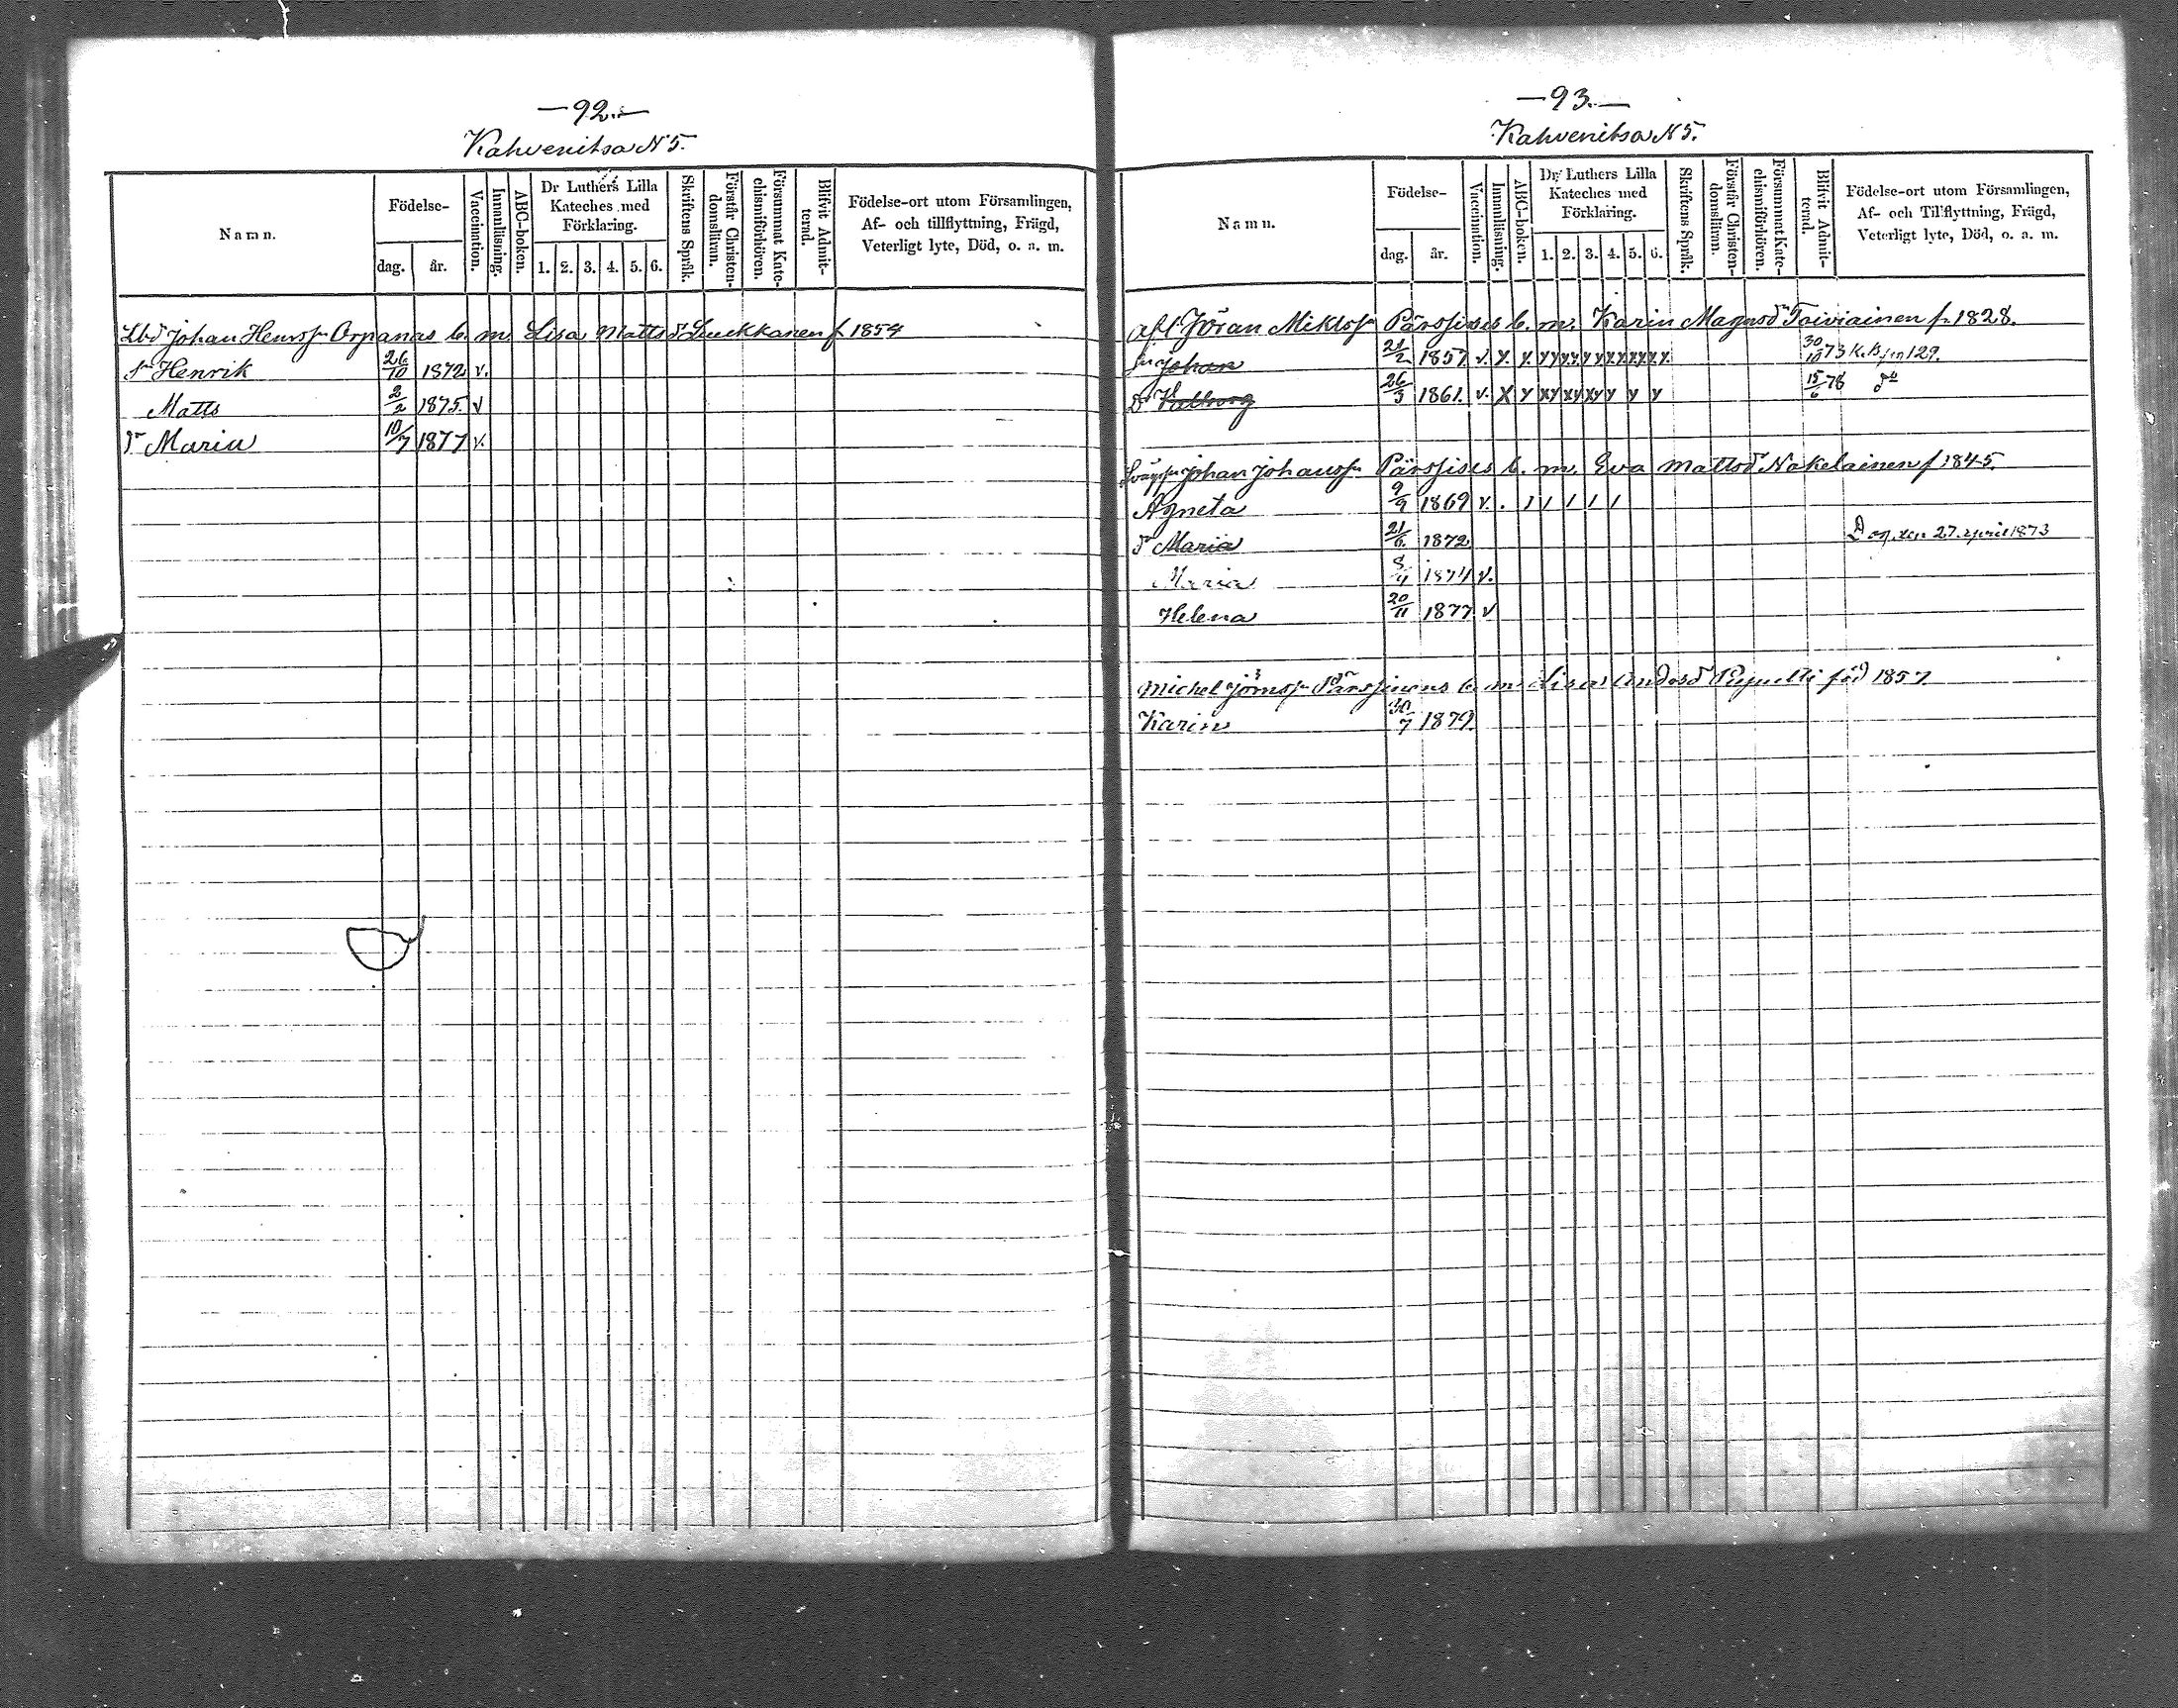 —92.—
Kahvenitsa N 5.
Namn.
Födelse-
dag.
år.
Vaccination.
Innanläsning.
ABC-boken.
Dr Luthers Lilla
Kateches med
Förklaring.
1. 2. 3. 4. 5. 6.
Skriftens Språk.
Förstår Christen-
domsläran.
Försummat Kate-
chismiförhören.
Blifvit Admit-
terad.
Födelse-ort utom Församlingen,
Af- och tillflyttning, Frägd,
Veterligt lyte, Död, o. a. m.
Johan Orpanas b. m. Lisa Matts d f 1854
Henrik 26/10 1872 v.
Matts 2/2 1875. v
Maria 10/7 1877 v.
—93.—
Kahvenitsa N 5.
Namn.
Födelse-
dag.
år.
Vaccination.
Innanläsning.
ABC-boken.
Dr Luthers Lilla
Kateches med
Förklaring.
1. 2. 3. 4. 5. 6.
Skriftens Språk.
Förstår Christen-
domsläran.
Försummat Kate-
chismiförhören.
Blifvit Admit-
terad.
Födelse-ort utom Församlingen,
Af- och Tillflyttning, Frägd,
Veterligt lyte, Död, o. a. m.
Afl. Jöran b. m. Karin Magnsd Toiviainen f. 1828.
Johan 21/2 1857. v. 30/10 73 K. B. 129.
Valborg 26/3 1861. v. 15/6 78
Johan Johanss b. m. Eva Mattsd Nakelainen f 1845.
Agneta 9/9 1869 v.
Maria 21/6 1872 27. april 1873
Maria 1874 v.
Helena 20/11 1877 v
Michel b. m. Lisa född 1857.
Karin 30/7 1879.